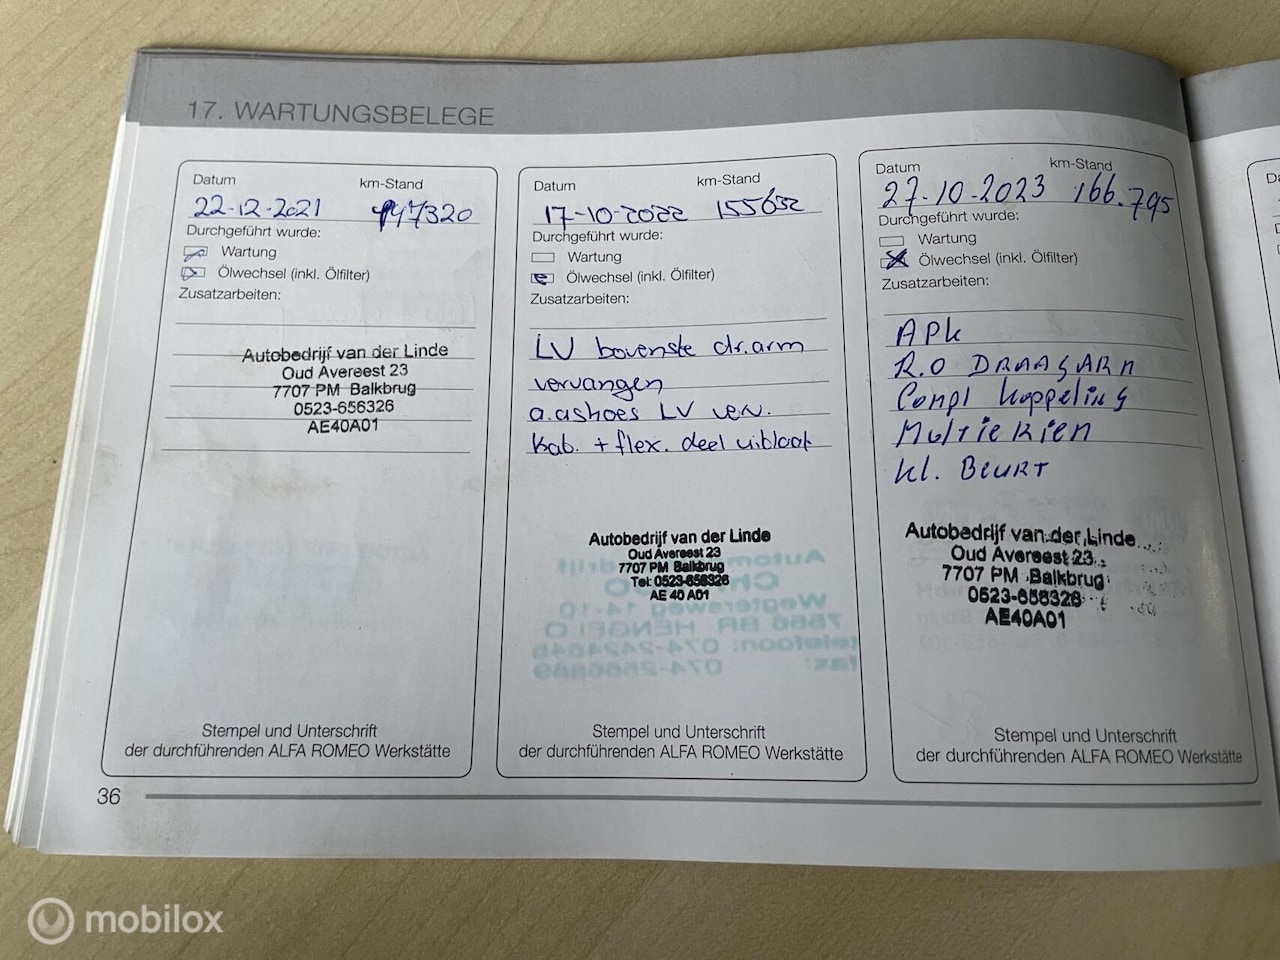 17. WARTUNGSBELEGE
Datum km-Stand
22-12-2021 147320
Durchgeführt wurde:
Wartung
Ölwechsel (inkl. Ölfilter)
Zusatzarbeiten:
Autobedrijf van der Linde
Oud Avereest 23
7707 PM Balkbrug
0523-656326
AE40A01
Stempel und Unterschrift
der durchführenden ALFA ROMEO Werkstätte
Datum km-Stand
17-10-2022 155632
Durchgeführt wurde:
Wartung
Ölwechsel (inkl. Ölfilter)
Zusatzarbeiten:
LV bovenste dr.arm
vervangen
a.ashoes LV verv.
Kab. + flex. deel uitlaat
Autobedrijf van der Linde
Oud Avereest 23
7707 PM Balkbrug
Tel: 0523-656326
AE 40 A01
Stempel und Unterschrift
der durchführenden ALFA ROMEO Werkstätte
Datum km-Stand
27-10-2023 166.795
Durchgeführt wurde:
Wartung
Ölwechsel (inkl. Ölfilter)
Zusatzarbeiten:
APk
R.O DRAAGARM
Compl koppeling
Multieriem
kl. BEURT
Autobedrijf van der Linde
Oud Avereest 23
7707 PM Balkbrug
0523-656326
AE40A01
Stempel und Unterschrift
der durchführenden ALFA ROMEO Werkstätte
36
mobilox